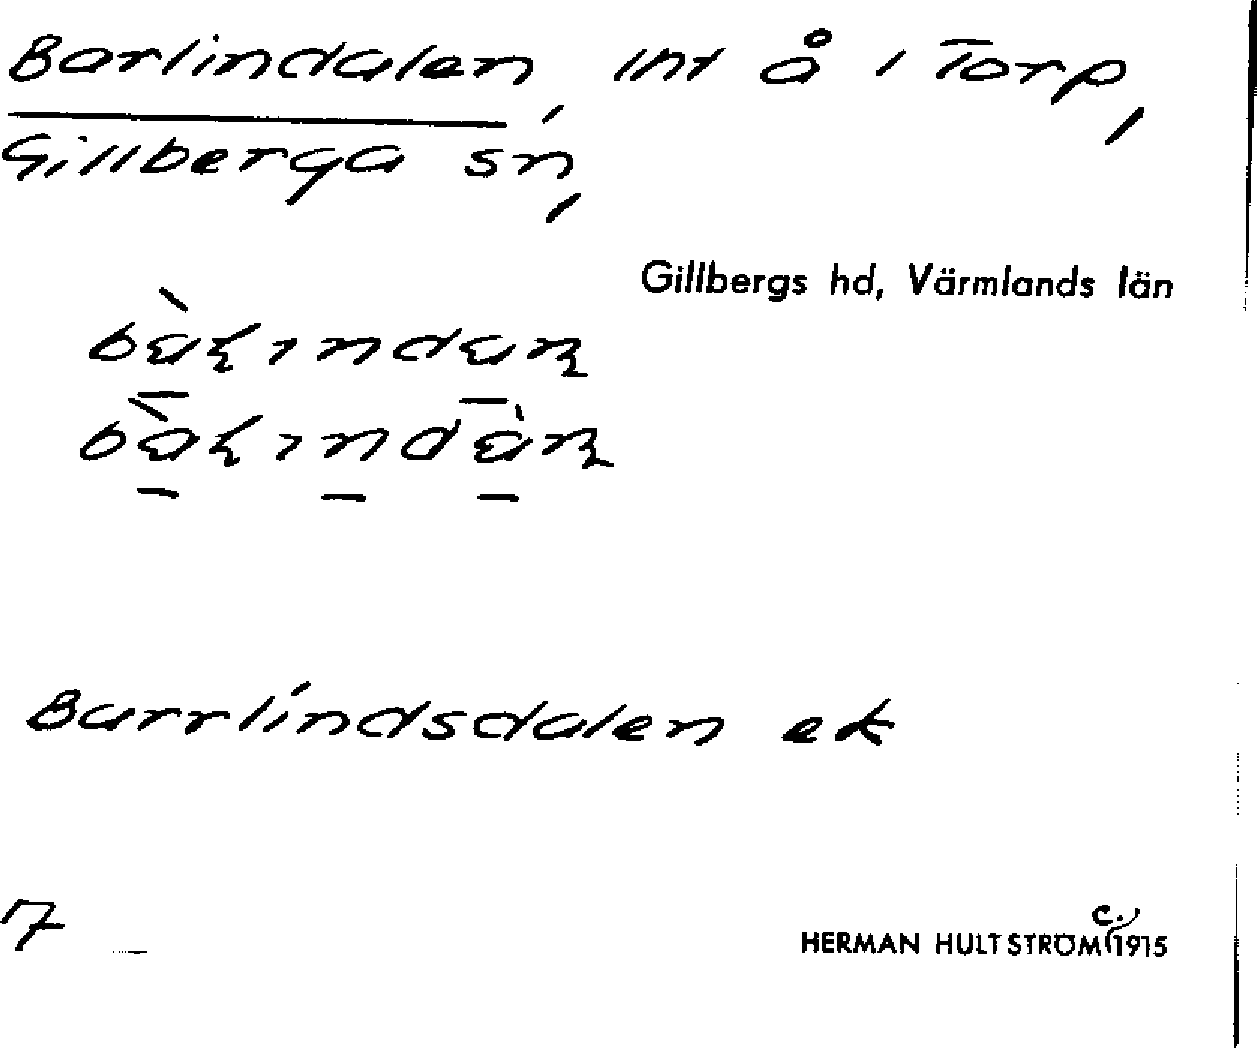 Barlindalen, int å i Torp,
Gillberga sn,
Gillbergs hd, Värmlands län
Barrlindsdalen ek
7
HERMAN HULTSTRÖM c. 1915